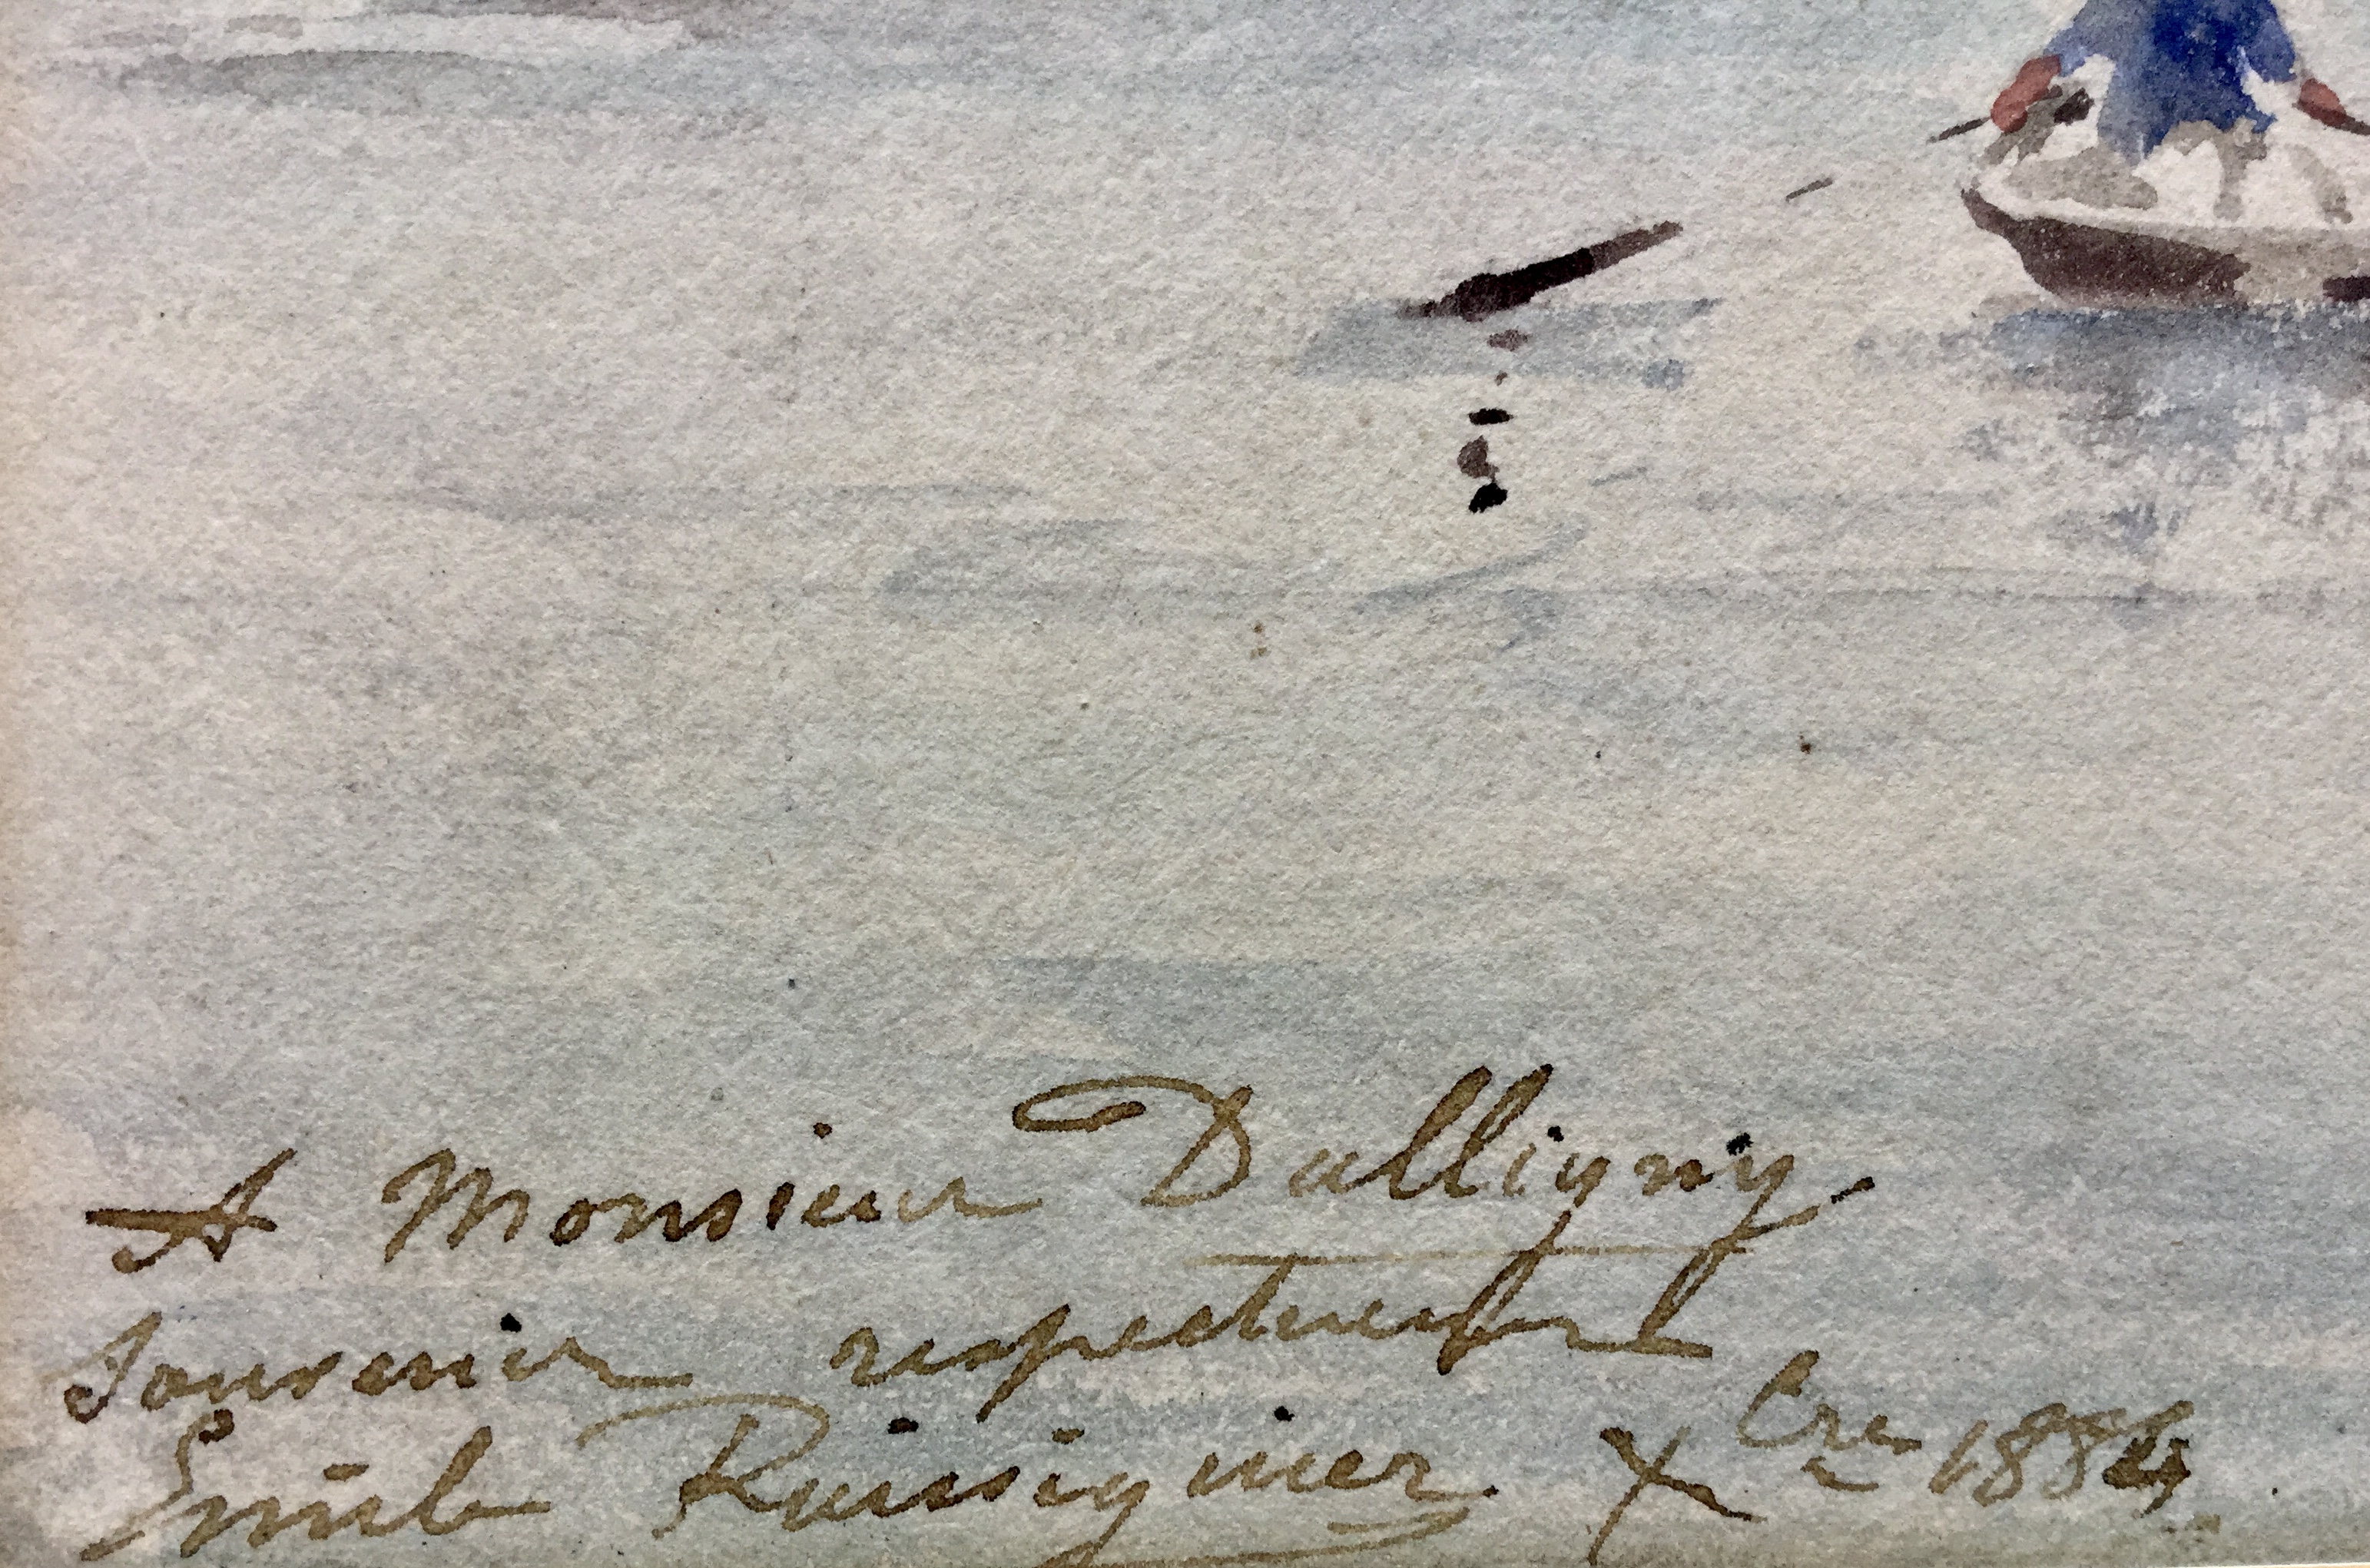 A Monsieur Dalligny
Souvenir respectueux
Emile Xbre 1884